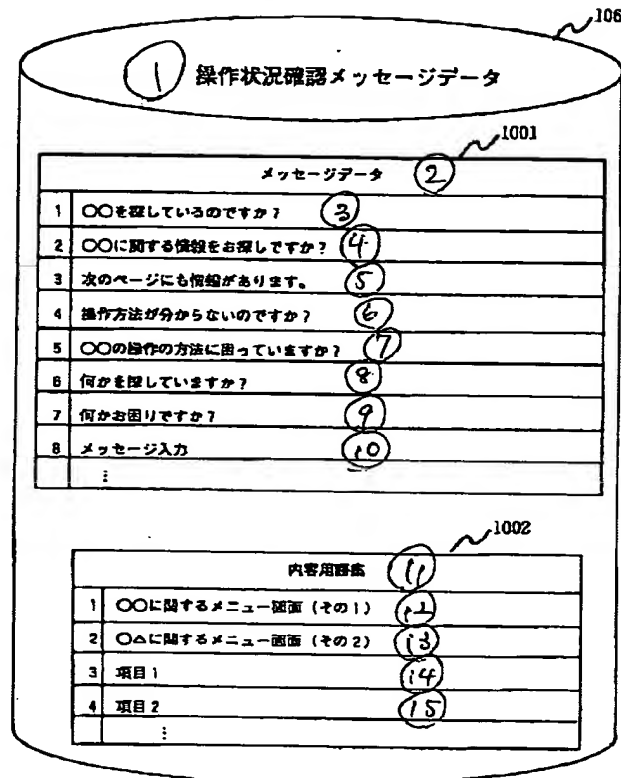 106
① 操作状況確認メッセージデータ
1001
メッセージデータ ②
1 〇〇を探しているのですか? ③
2 〇〇に関する情報をお探しですか? ④
3 次のページにも情報があります。 ⑤
4 操作方法が分からないのですか? ⑥
5 〇〇の操作の方法に困っていますか? ⑦
6 何かを探していますか? ⑧
7 何かお困りですか? ⑨
8 メッセージ入力 ⑩
⋮
1002
内容用語集 ⑪
1 〇〇に関するメニュー画面(その1) ⑫
2 〇△に関するメニュー画面(その2) ⑬
3 項目1 ⑭
4 項目2 ⑮
⋮